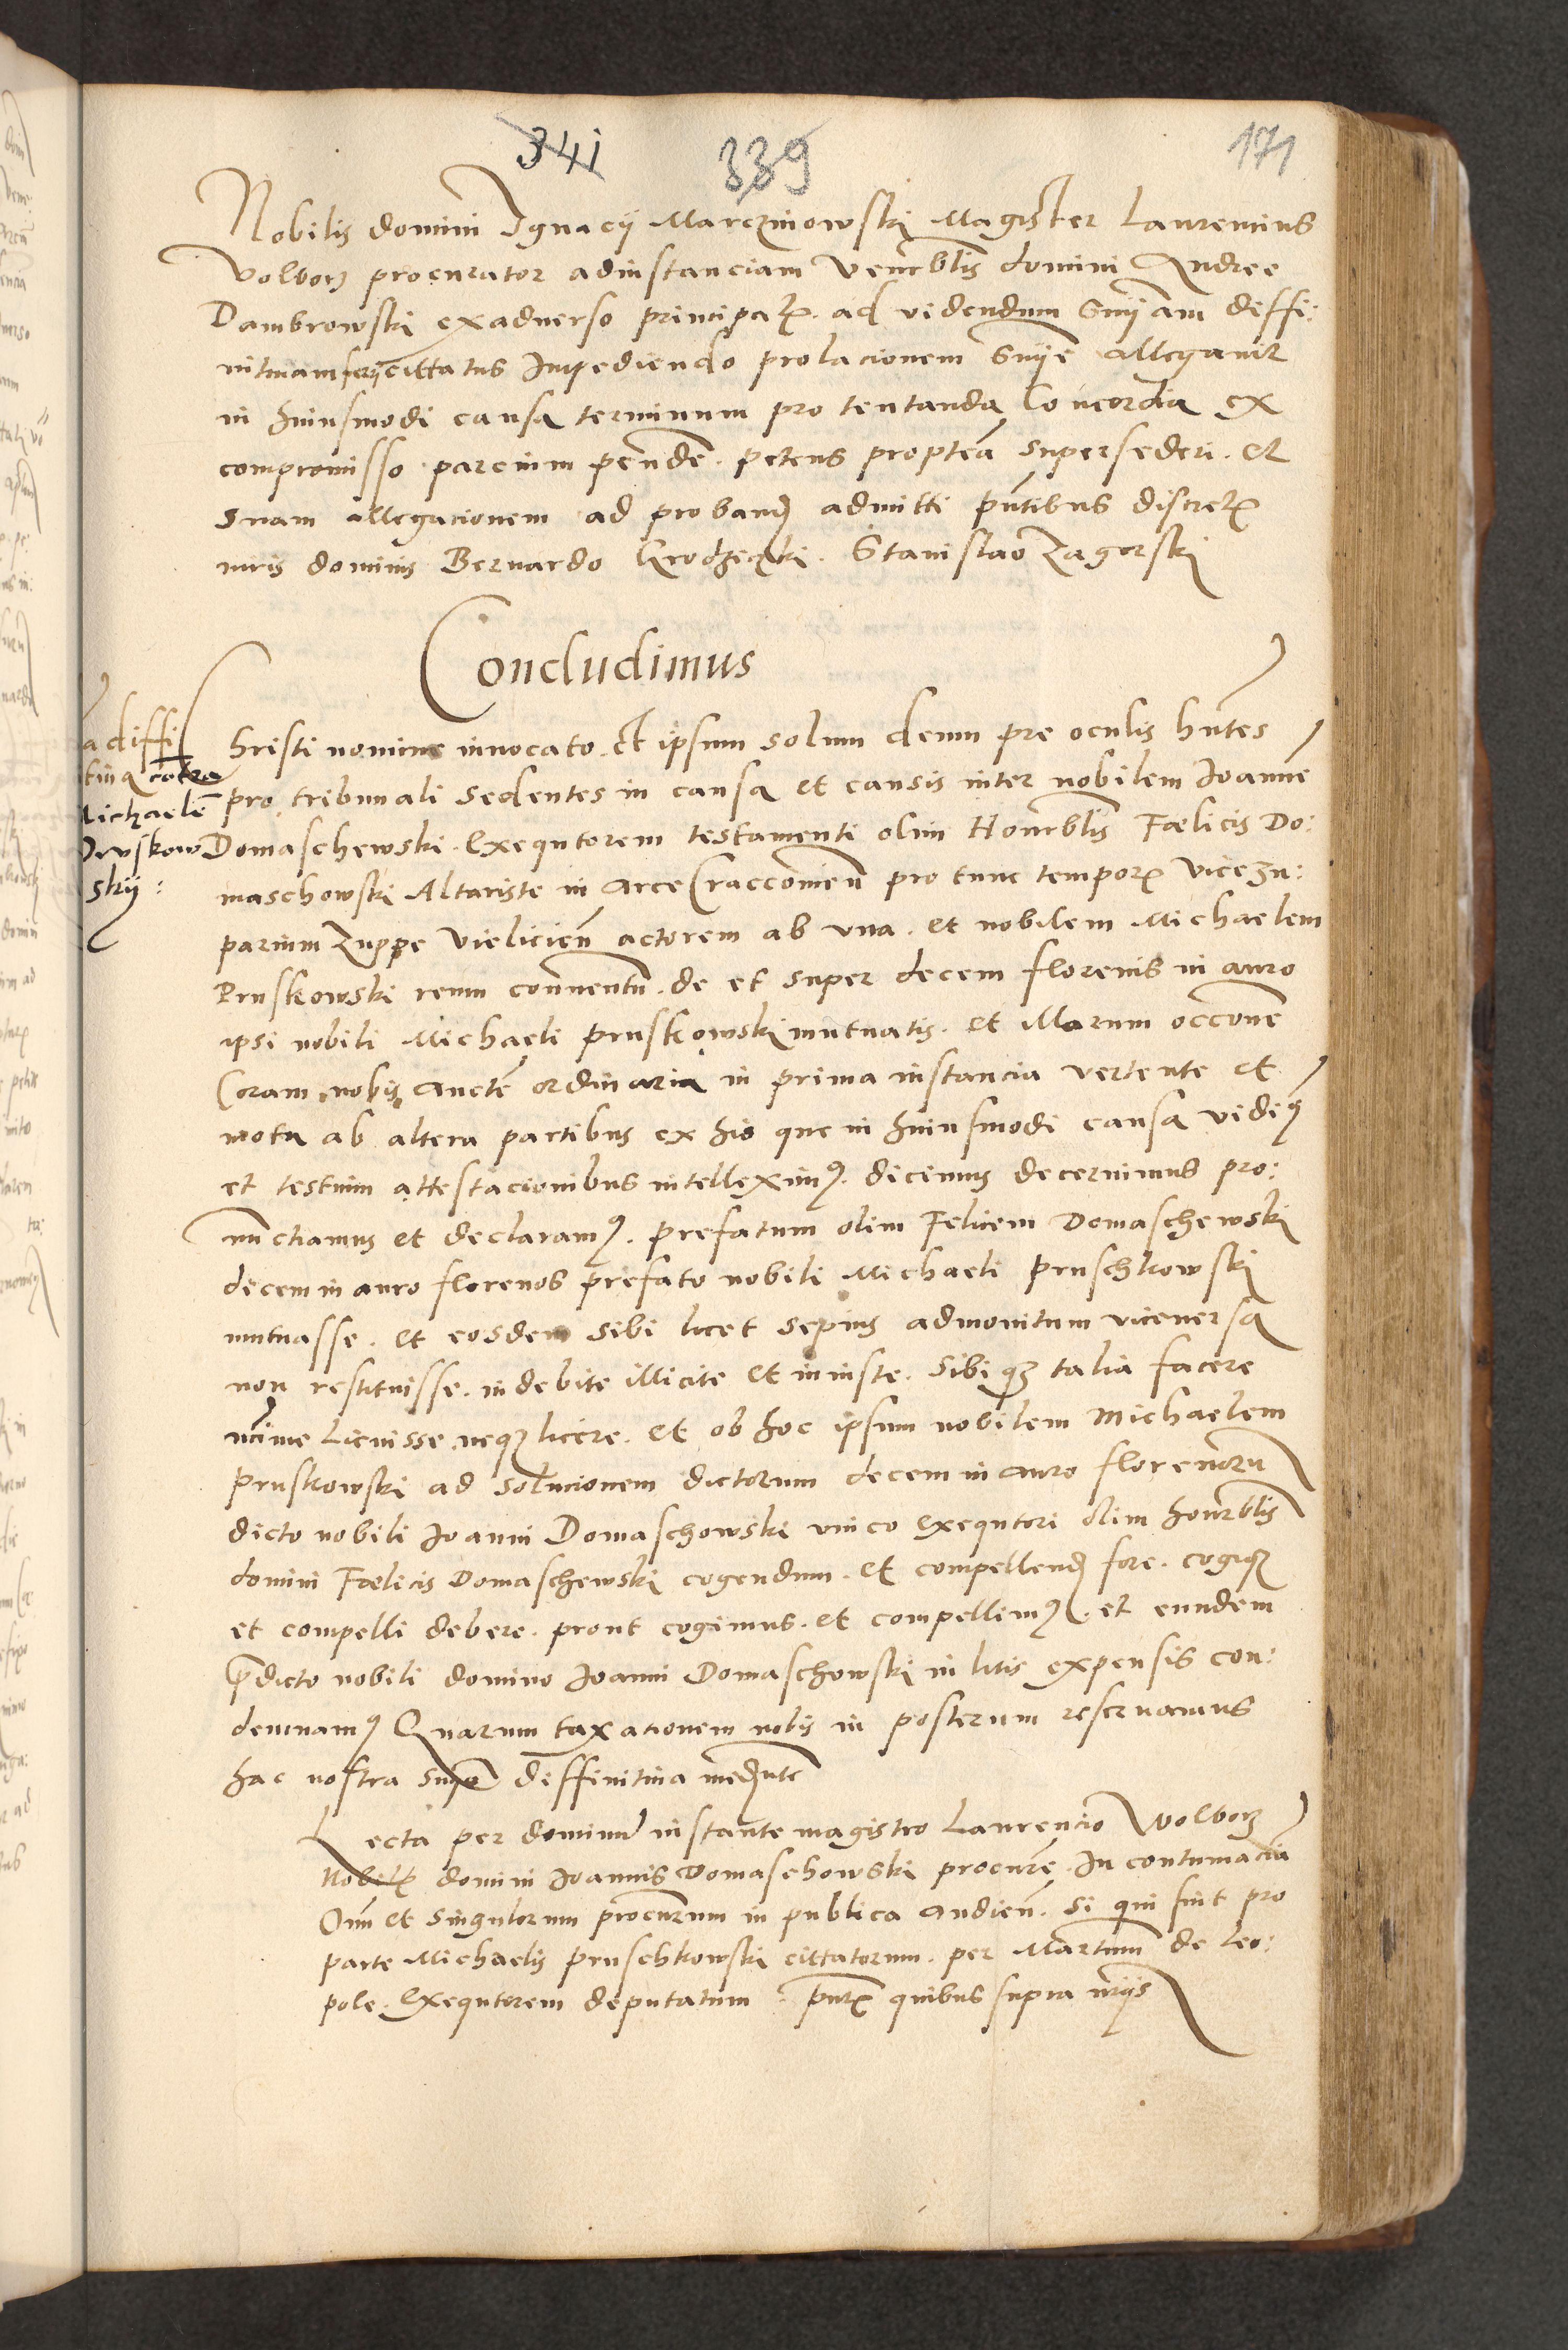 341 339 171
Nobilis domini Ignacij Marczinowski Magister Laurencius
Volborz procurator ad instanciam venerblis domini Andree
Dambrowski ex adverso principalis ad videndum sniam diffi:
nitivam ferri cittatus Impediendo prolacionem snie allegavit
in huiusmodi causa terminum pro tentanda Concordia ex
compromisso parcium penden. petens proptea supersederi. et
suam allegacionem ad proband admitti pntibus discretis
viris dominis Bernardo Grodzieczki. Stanislao Zagorski
Concludimus
a diffi
tiua cotra
Michaele
Pruskow
skij:
Christi nomine invocato. Et ipsum solum deum pre oculis hntes
pro tribunali sedentes in causa et causis inter nobilem Joanne
Domaschewski. Exequtorem testamenti olim Honorblis Fœlicis Do:
maschowski Altariste in arce Craccovien pro tunc temporis vicezu:
parium Zuppe vielicien actorem ab vna. et nobilem Michaelem
Pruskowski reum conventu. de et super decem florenis in auro
ipsi nobili Michaeli pruskowski mutuatis. et illarum occone
Coram nobis aucte ordinaria in prima instancia vertente et
mota ab altera partibus ex his que in huiusmodi causa vidimus
et testium attestacionibus intelleximus. dicimus decernimus pro:
nunctiamus et declaramus. prefatum olim Felicem Domaschewski
decem in auro florenos prefato nobili Michaeli pruschkowski
mutuasse. et eosdem sibi licet sepius admonitum viceversa
non restituisse. indebite illicite et iniuste. sibique talia facere
minime licuisse neque licere. et ob hoc ipsum nobilem Michaelem
pruskowski ad solucionem dictorum decem in auro florenoru
dicto nobili Joanni Domaschowski vnico exequtori olim honorblis
domini Fœlicis Domaschewski cogendum. et compellend fore. cogique
et compelli debere. prout cogimus. et compellimus. et eundem
predicto nobili domino Joanni Domaschowski in litis expensis con:
demnamus Quarum taxationem nobis in posterum reservamus
hac nostra snia diffinitiva mediante
Lecta per dominum instante magistro Laurencio Wolborz
Nobilis domini Joannis Domaschowski procure. In contumacia
Omi et singulorum procurum in publica audien. si qui sint pro
parte Michaelis pruschkowski cittatorum. per Martinu de Leo:
pole. Exequtorem deputatum. pntibus quibus supra